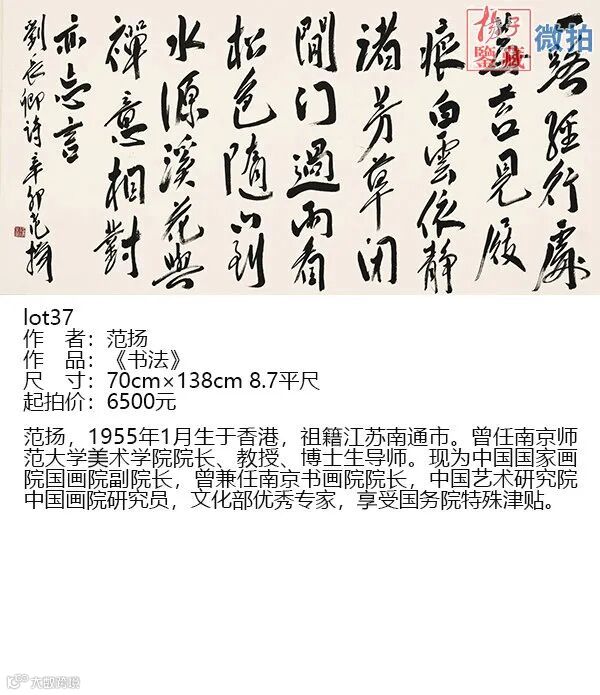 一路經行處
苔見履
痕白雲依静
渚芳草閉
閒门過雨看
松色隨山到
水源溪花與
禪意相對
亦忘言
劉長卿詩辛卯范揚
鑒藏
微拍
lot37
作 者：范扬
作 品：《书法》
尺 寸：70cm×138cm 8.7平尺
起拍价：6500元
范扬，1955年1月生于香港，祖籍江苏南通市。曾任南京师
范大学美术学院院长、教授、博士生导师。现为中国国家画
院国画院副院长，曾兼任南京书画院院长，中国艺术研究院
中国画院研究员，文化部优秀专家，享受国务院特殊津贴。
大数跨境